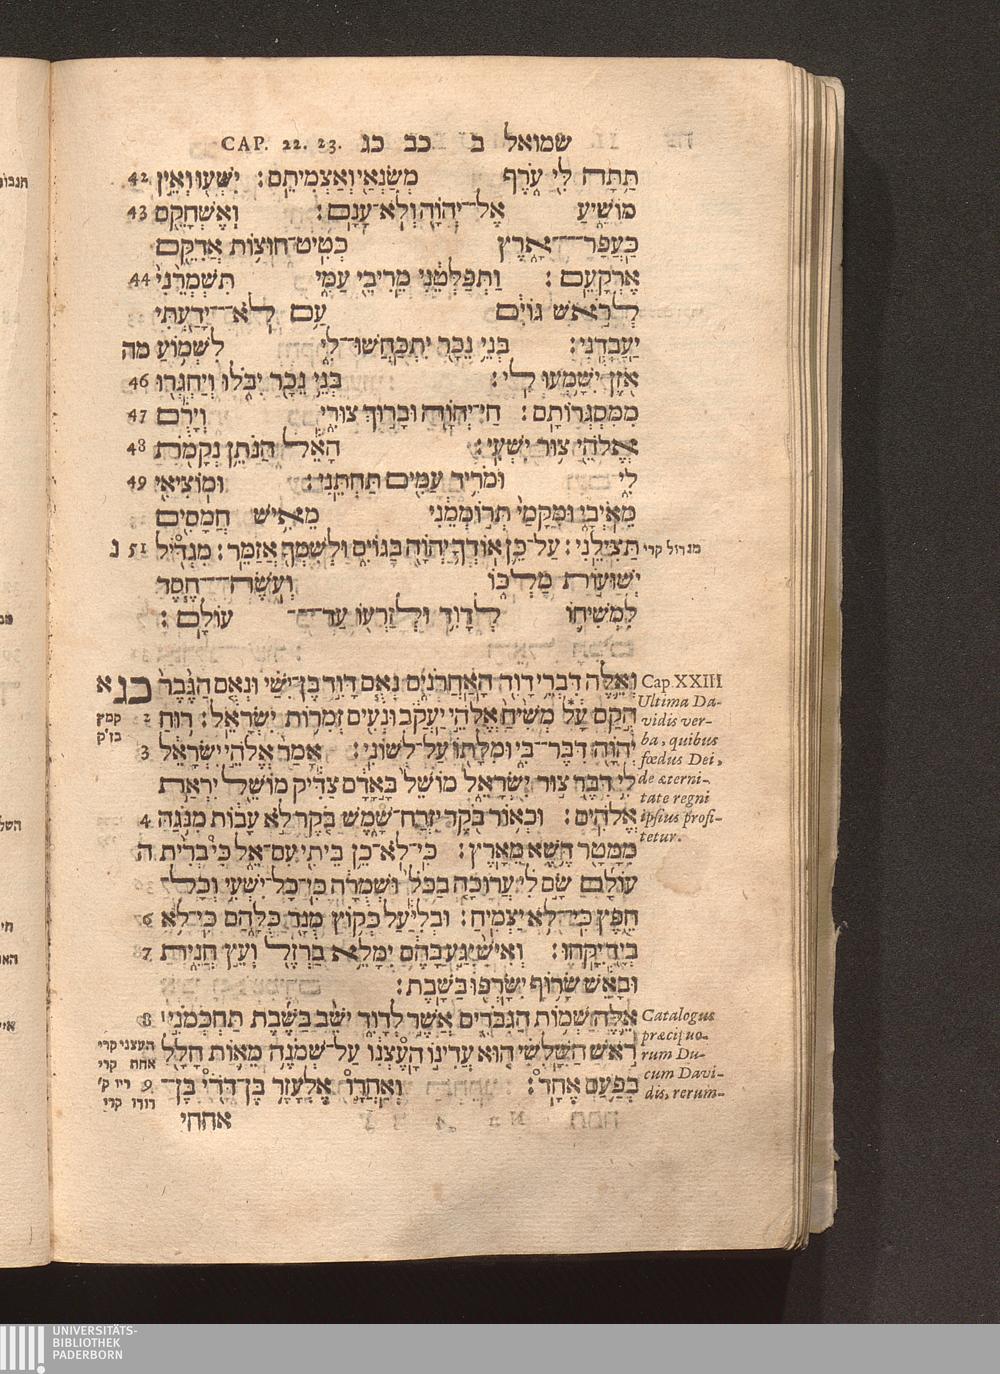 CAP. 22. 23. שמואל ב כב כג
תַּתָּה לִּי עֹרֶף מְשַׂנְאַי וָאַצְמִיתֵם׃ יִשְׁעוּ וְאֵין 42
מוֹשִׁיעַ אֶל־יְהֹוָה וְלֹא עָנָם׃ וְאֶשְׁחָקֵם 43
כַּעֲפַר־אָרֶץ כְּטִיט־חוּצוֹת אֲדִקֵּם
אֶרְקָעֵם׃ וַתְּפַלְּטֵנִי מֵרִיבֵי עַמִּי תִּשְׁמְרֵנִי 44
לְרֹאשׁ גּוֹיִם עַם לֹא־יָדַעְתִּי
יַעַבְדֻנִי׃ בְּנֵי נֵכָר יִתְכַּחֲשׁוּ־לִי לִשְׁמוֹעַ מה
אֹזֶן יִשָּׁמְעוּ לִי׃ בְּנֵי נֵכָר יִבֹּלוּ וְיַחְגְּרוּ 46
מִמִּסְגְּרוֹתָם׃ חַי־יְהֹוָה וּבָרוּךְ צוּרִי וְיָרֻם 47
אֱלֹהֵי צוּר יִשְׁעִי׃ הָאֵל הַנֹּתֵן נְקָמֹת 48
לִי וּמֹרִיד עַמִּים תַּחְתֵּנִי׃ וּמוֹצִיאִי 49
מֵאֹיְבָי וּמִקָּמַי תְּרוֹמְמֵנִי מֵאִישׁ חֲמָסִים
תַּצִּילֵנִי׃ עַל־כֵּן אוֹדְךָ יְהֹוָה בַּגּוֹיִם וּלְשִׁמְךָ אֲזַמֵּר׃ מִגְדִּיל 51 נ
מגדול קרי
יְשׁוּעוֹת מַלְכּוֹ וְעֹשֶׂה־חֶסֶד
לִמְשִׁיחוֹ לְדָוִד וּלְזַרְעוֹ עַד־עוֹלָם׃
וְאֵלֶּה דִּבְרֵי דָוִד הָאַחֲרֹנִים נְאֻם דָּוִד בֶּן־יִשַׁי וּנְאֻם הַגֶּבֶר כג א
הֻקַם עָל מְשִׁיחַ אֱלֹהֵי יַעֲקֹב וּנְעִים זְמִרוֹת יִשְׂרָאֵל׃ רוּחַ 2
יְהֹוָה דִּבֶּר־בִּי וּמִלָּתוֹ עַל־לְשׁוֹנִי׃ אָמַר אֱלֹהֵי יִשְׂרָאֵל 3
לִי דִבֶּר צוּר יִשְׂרָאֵל מוֹשֵׁל בָּאָדָם צַדִּיק מוֹשֵׁל יִרְאַת
אֱלֹהִים׃ וּכְאוֹר בֹּקֶר יִזְרַח־שָׁמֶשׁ בֹּקֶר לֹא עָבוֹת מִנֹּגַהּ 4
מִמָּטָר דֶּשֶׁא מֵאָרֶץ׃ כִּי־לֹא־כֵן בֵּיתִי עִם־אֵל כִּי בְרִית ה
עוֹלָם שָׂם לִי עֲרוּכָה בַכֹּל וּשְׁמֻרָה כִּי־כָל־יִשְׁעִי וְכָל־
חֵפֶץ כִּי־לֹא יַצְמִיחַ׃ וּבְלִיַּעַל כְּקוֹץ מֻנָד כֻּלָּהַם כִּי־לֹא 6
בְיָד יִקָּחוּ׃ וְאִישׁ יִגַּע בָּהֶם יִמָּלֵא בַרְזֶל וְעֵץ חֲנִית 7
וּבָאֵשׁ שָׂרוֹף יִשָּׂרְפוּ בַּשָּׁבֶת׃
אֵלֶּה שְׁמוֹת הַגִּבֹּרִים אֲשֶׁר לְדָוִד יֹשֵׁב בַּשֶּׁבֶת תַּחְכְּמֹנִי 8
רֹאשׁ הַשָּׁלִשִׁי הוּא עֲדִינוֹ הָעֶצְנִו עַל־שְׁמֹנֶה מֵאוֹת חָלָל
בְּפַעַם אֶחָד׃ וְאַחֲרָו אֶלְעָזָר בֶּן־דֹּדִי בֶּן־ 9
אחחי
Cap. XXIII
Ultima Da-
vidis ver-
ba, quibus
fœdus Dei,
de æterni-
tate regni
ipsius profi-
tetur.
Catalogus
præcipuo-
rum Du-
cum Davi-
dis, rerum-
קמץ
בז'ק
העצני קרי
אחת קרי
ריו ק'
דודו קרי
UNIVERSITÄTS-
BIBLIOTHEK
PADERBORN